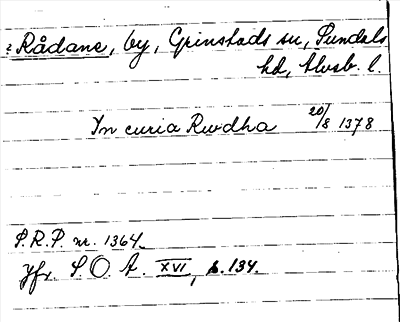 ? Rådane, by, Grinstads sn, Sundals
hd, Älvsb. l.
In curia Rwdha 20/8 1378
S.R.P. nr. 1364.
Jfr. S.O.A. XVI, s. 134.